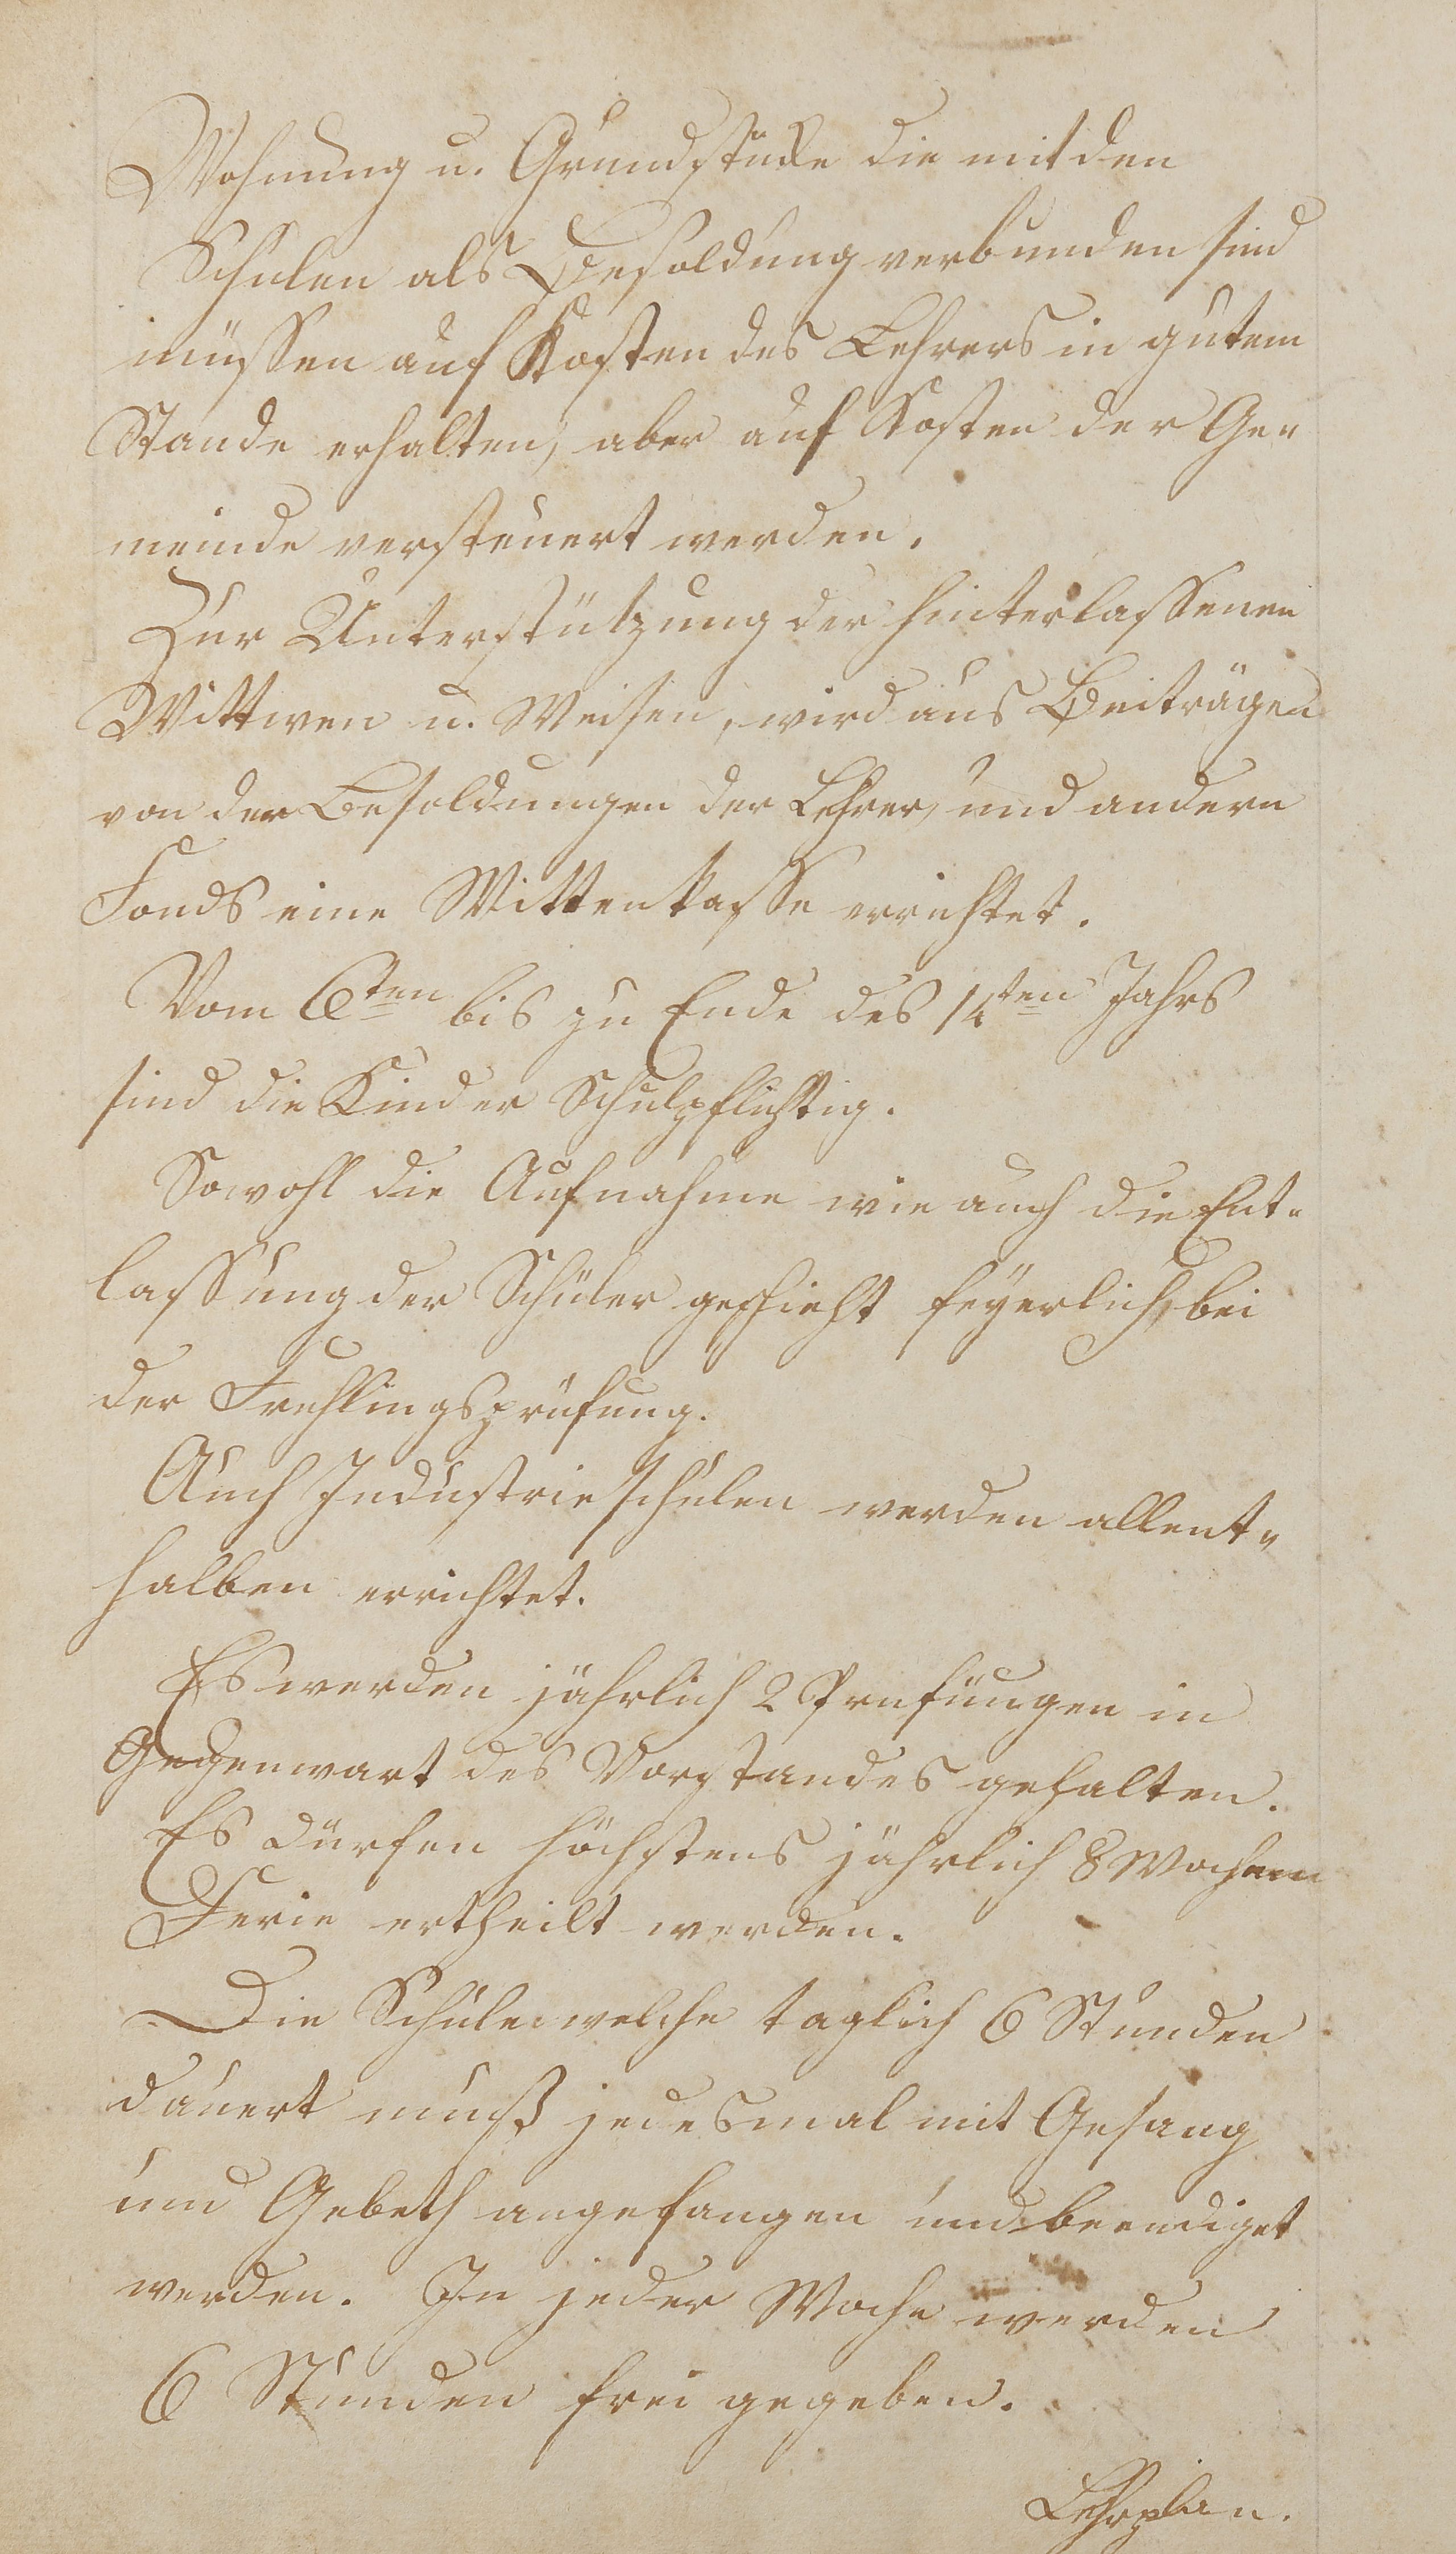 Wohnung u. Grundstücke die mit den
Schulen als Besoldung verbunden sind
müssen auf Kosten des Lehrers in gutem
Stande erhalten, aber auf Kosten der Ge-
meinde versteuert werden.
Zur Unterstützung der hinterlassenen
Wittwen u. Weisen, wird aus Beiträgen
von den Besoldungen der Lehrer, und andern
Fonds eine Wittenkasse errichtet.
Vom 6ten bis zu Ende des 14ten Jahrs
sind die Kinder Schulpflichtig.
Sowohl die Aufnahme wie auch die Ent-
lassung der Schüler geschieht feyerlich, bei
der Fruhlingsprüfung.
Auch Industrieschulen werden allent-
halben errichtet.
Es werden jährlich 2 Prufungen in
Gegenwart des Vorstandes gehalten.
Es dürfen höchstens jährlich 8 Wochen
Ferie ertheilt werden.
Die Schule welche taglich 6 Stunden
dauert muß jedesmal mit Gesang
und Gebeth angefangen und beendiget
werden. In jeder Woche werden
6 Stunden frei gegeben.
Lehrplan.